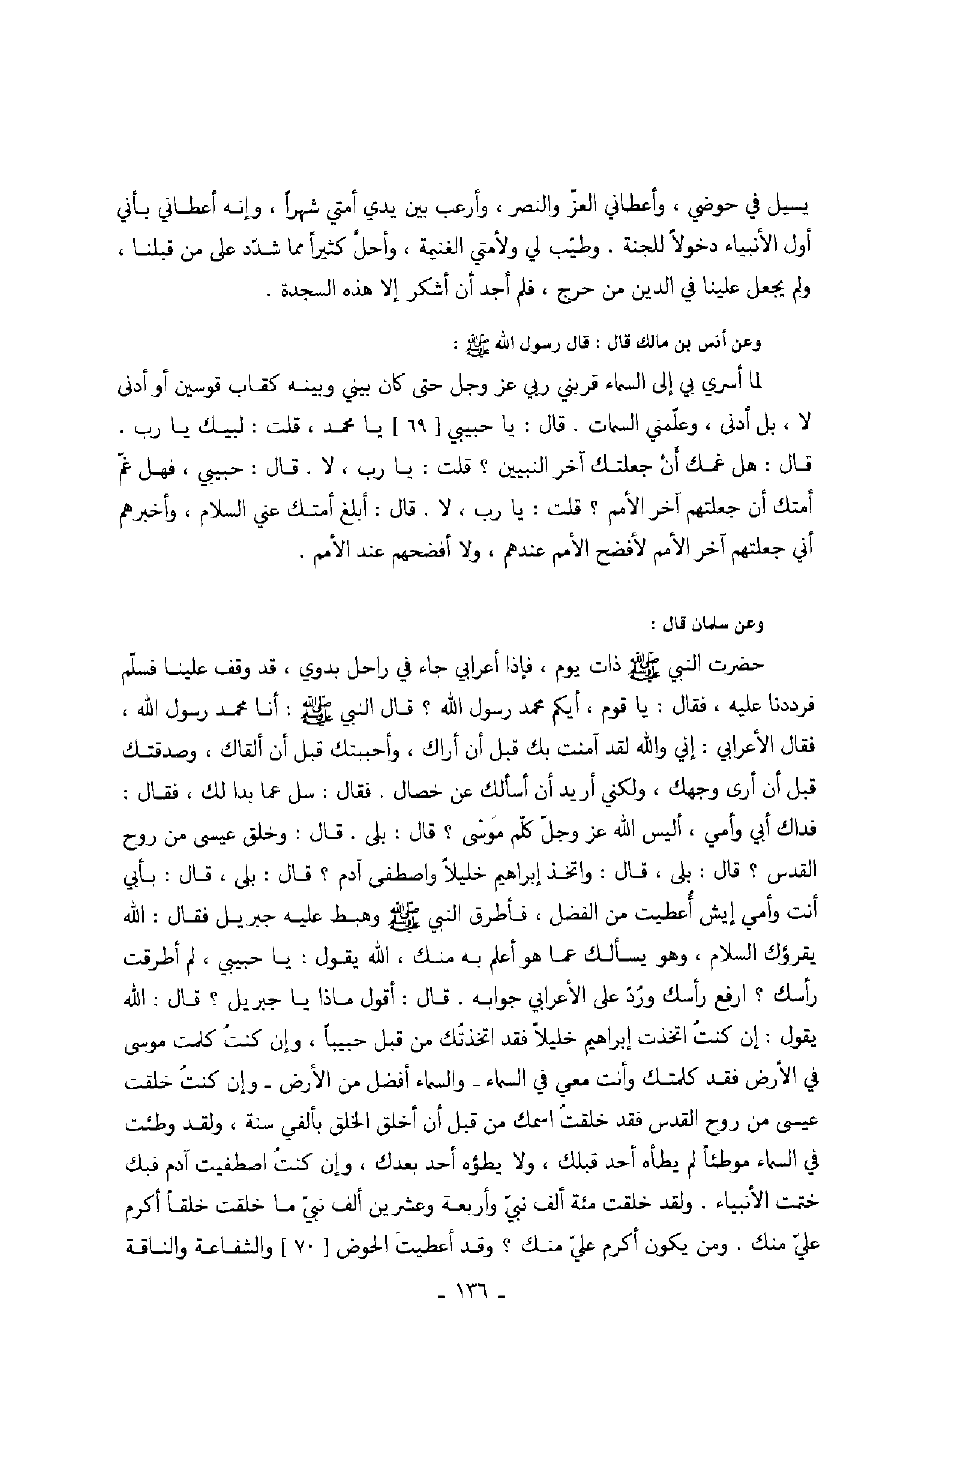 يسيل في حوضي ، وأعطاني العزّ والنصر ، وأرعب بين يدي أمتي شهراً ، وإنه أعطاني بأني
أول الأنبياء دخولاً للجنة . وطيّب لي ولأمتي الغنيمة ، وأحلّ كثيراً مما شدّد على من قبلنا ،
ولم يجعل علينا في الدين من حرج ، فلم أجد أن أشكر إلا هذه السجدة .
وعن أنس بن مالك قال : قال رسول الله ﷺ :
لما أسري بي إلى السماء قربني ربي عز وجل حتى كان بيني وبينه كقاب قوسين أو أدنى
لا ، بل أدنى ، وعلّمني السمات . قال : يا حبيبي [ ٦٩ ] يا محمد ، قلت : لبيك يا رب .
قال : هل غمك أنْ جعلتك آخر النبيين ؟ قلت : يا رب ، لا . قال : حبيبي ، فهل غمّ
أمتك أن جعلتهم آخر الأمم ؟ قلت : يا رب ، لا . قال : أبلغ أمتك عني السلام ، وأخبرهم
أني جعلتهم آخر الأمم لأفضح الأمم عندهم ، ولا أفضحهم عند الأمم .
وعن سلمان قال :
حضرت النبي ﷺ ذات يوم ، فإذا أعرابي جاء في راحل بدوي ، قد وقف علينا فسلّم
فرددنا عليه ، فقال : يا قوم ، أيكم محمد رسول الله ؟ قال النبي ﷺ : أنا محمد رسول الله ،
فقال الأعرابي : إني والله لقد آمنت بك قبل أن أراك ، وأحببتك قبل أن ألقاك ، وصدقتك
قبل أن أرى وجهك ، ولكني أريد أن أسألك عن خصال . فقال : سل عما بدا لك ، فقال :
فداك أبي وأمي ، أليس الله عز وجلّ كلّم موسى ؟ قال : بلى . قال : وخلق عيسى من روح
القدس ؟ قال : بلى ، قال : واتخذ إبراهيم خليلاً واصطفى آدم ؟ قال : بلى ، قال : بأبي
أنت وأمي إيش أُعطيت من الفضل ، فأطرق النبي ﷺ وهبط عليه جبريل فقال : الله
يقرؤك السلام ، وهو يسألك عما هو أعلم به منك ، الله يقول : يا حبيبي ، لم أطرقت
رأسك ؟ ارفع رأسك ورُدّ على الأعرابي جوابه . قال : أقول ماذا يا جبريل ؟ قال : الله
يقول : إن كنتُ اتخذت إبراهيم خليلاً فقد اتخذتُك من قبل حبيباً ، وإن كنتُ كلمت موسى
في الأرض فقد كلمتك وأنت معي في السماء - والسماء أفضل من الأرض - وإن كنتُ خلقت
عيسى من روح القدس فقد خلقتُ اسمك من قبل أن أخلق الخلق بألفي سنة ، ولقد وطئت
في السماء موطئاً لم يطأه أحد قبلك ، ولا يطؤه أحد بعدك ، وإن كنتُ اصطفيت آدم فبك
ختمت الأنبياء . ولقد خلقت مئة ألف نبيّ وأربعة وعشرين ألف نبيّ ما خلقت خلقاً أكرم
عليّ منك . ومن يكون أكرم عليّ منك ؟ وقد أعطيتَ الحوض [ ٧٠ ] والشفاعة والناقة
- ١٣٦ -